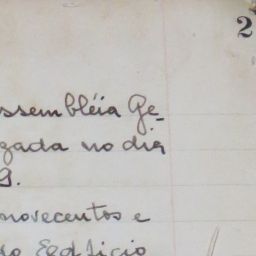 2
ssembléia Ge-
zada no dia
9.
novecentos e
do Edificio